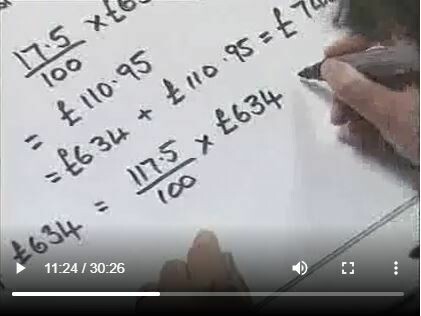 17.5/100 × £63
= £110.95
= £634 + £110.95 = £74
£634 = 117.5/100 × £634
11:24 / 30:26